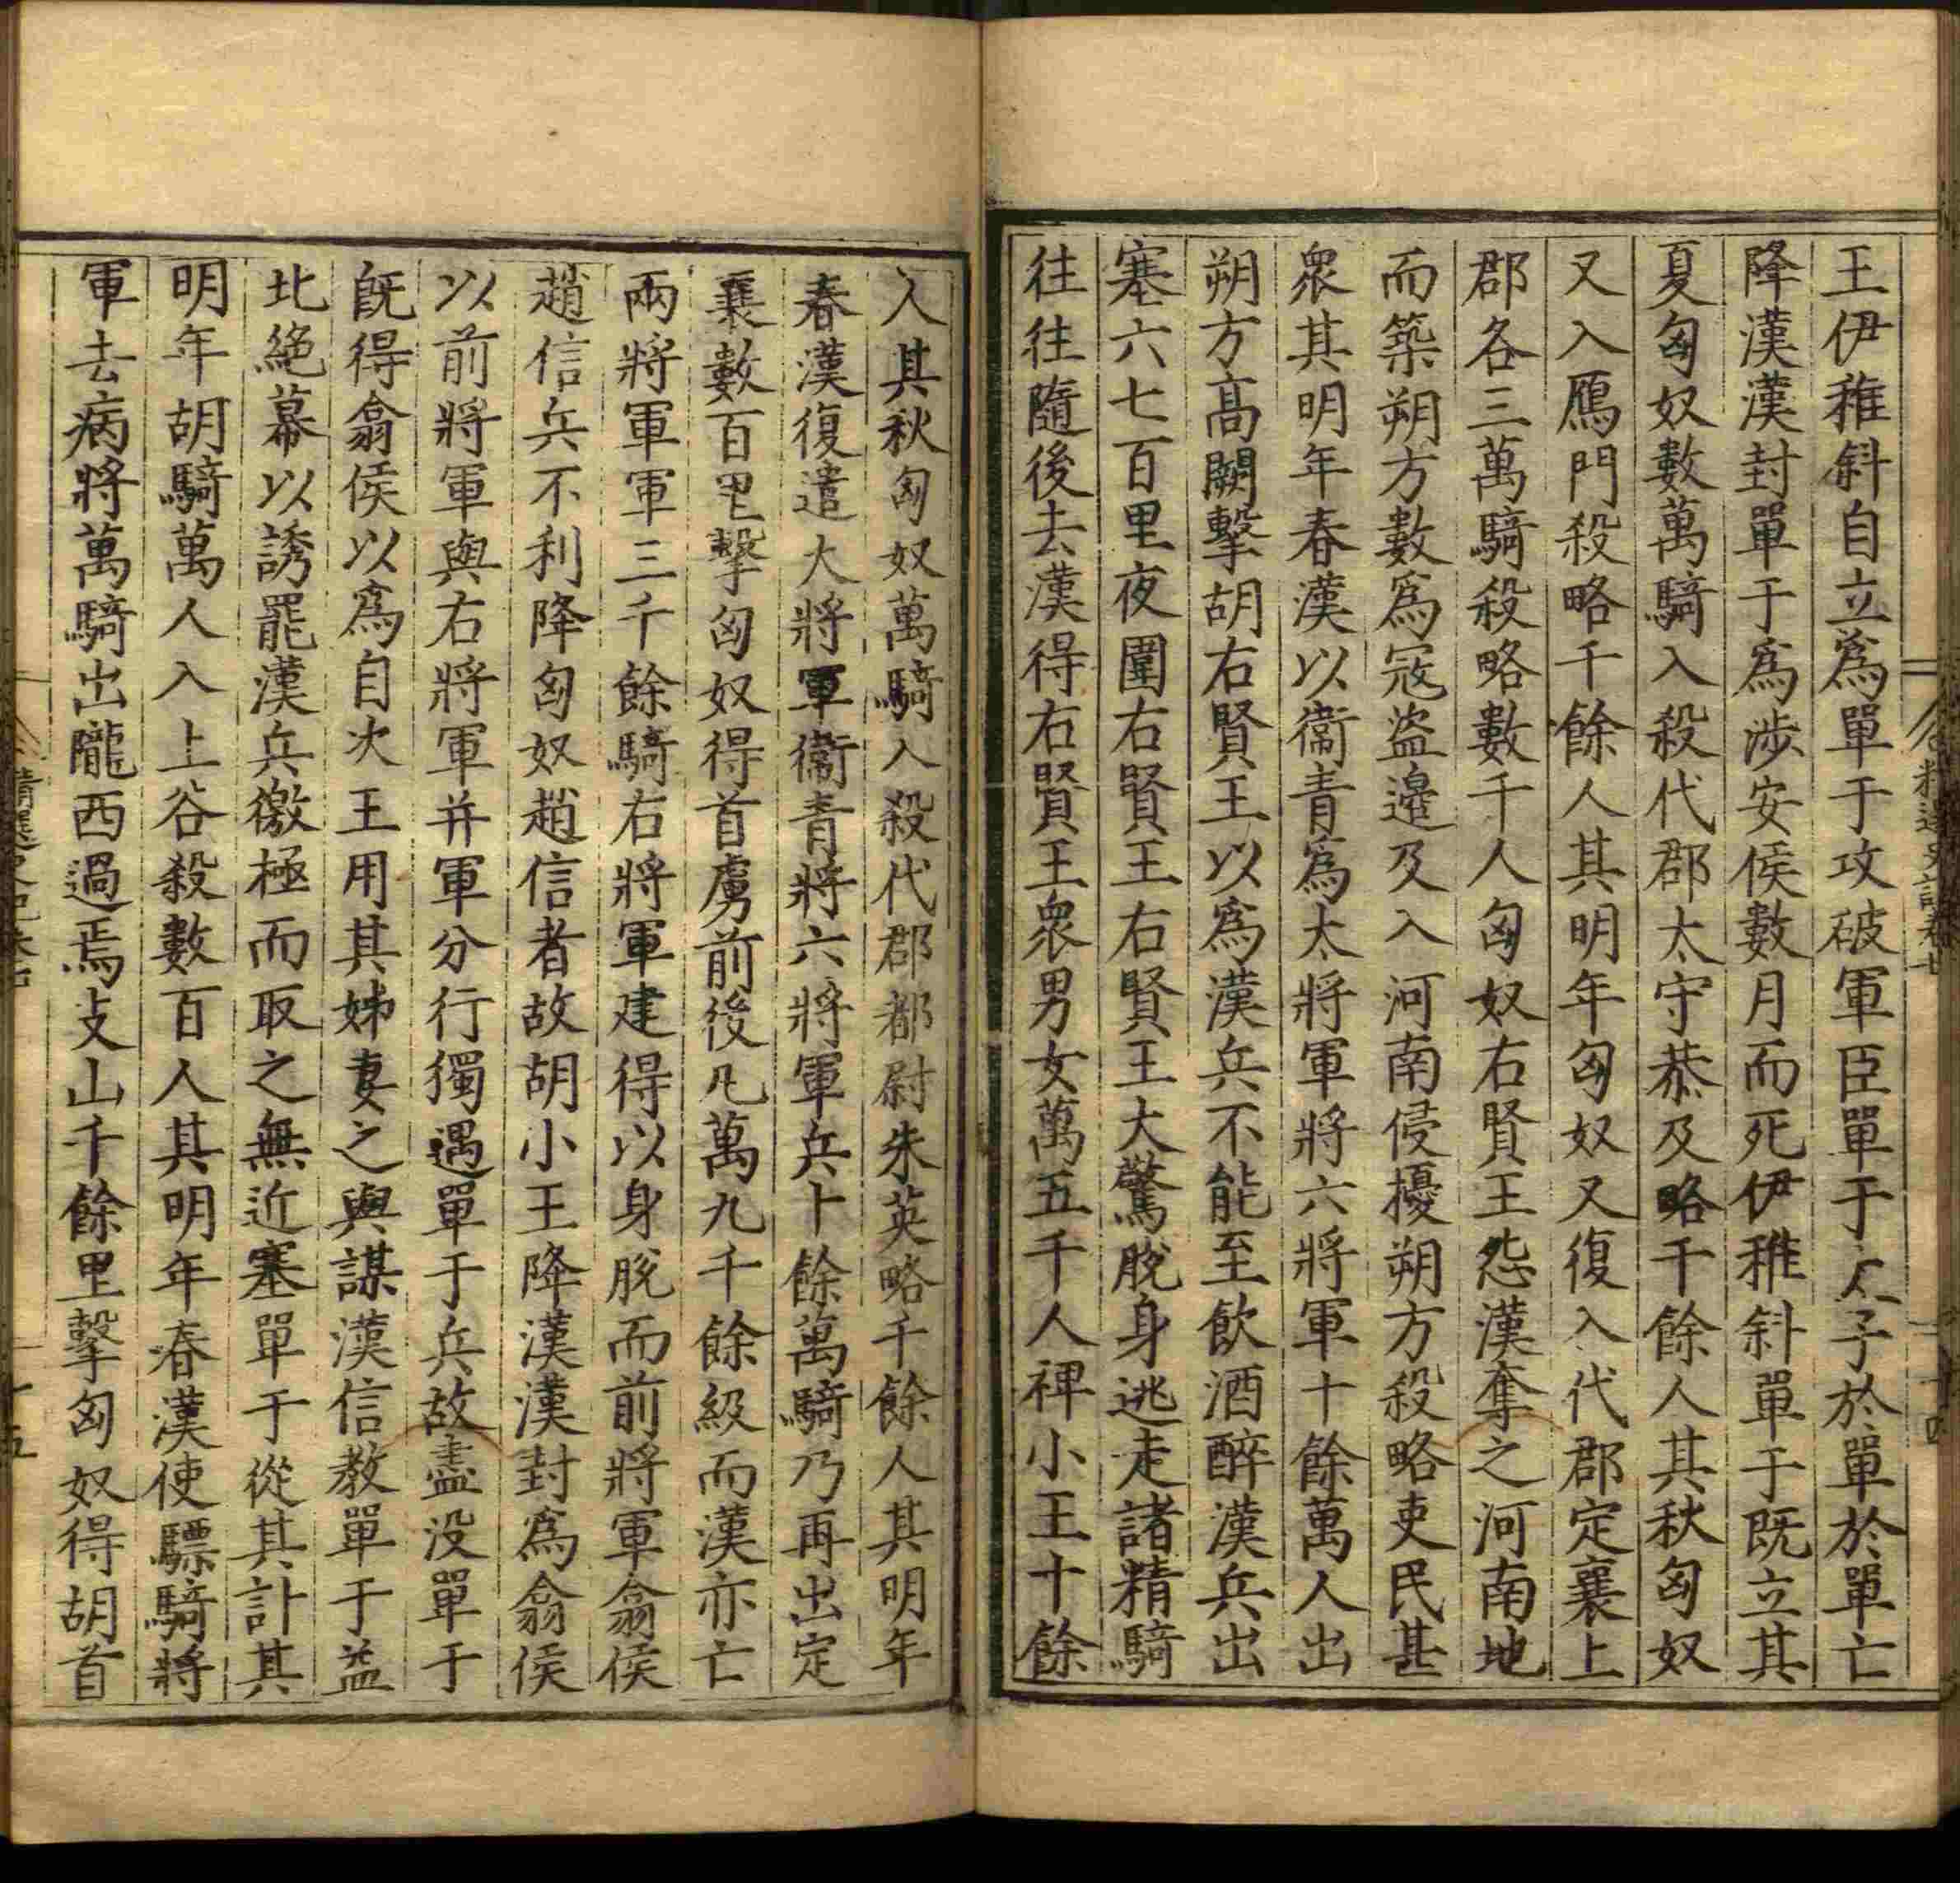 王伊稚斜自立爲單于攻破軍臣單于太子於單於單亡
降漢漢封單于爲渉安侯數月而死伊稚斜單于既立其
夏匈奴數萬騎入殺代郡太守恭及略千餘人其秋匈奴
又入鴈門殺略千餘人其明年匈奴又復入代郡定襄上
郡各三萬騎殺略數千人匈奴右賢王怨漢奪之河南地
而築朔方數爲冦盜邉及入河南侵擾朔方殺略吏民甚
衆其明年春漢以衞青爲大將軍將六將軍十餘萬人出
朔方髙闕擊胡右賢王以爲漢兵不能至飲酒醉漢兵出
塞六七百里夜圍右賢王右賢王大驚脫身逃走諸精騎
往往隨後去漢得右賢王衆男女萬五千人裨小王十餘
精選史記卷七
十四
入其秋匈奴萬騎入殺代郡都尉朱英略千餘人其明年
春漢復遣大將軍衞青將六將軍兵十餘萬騎乃再出定
襄數百里擊匈奴得首虜前後凡萬九千餘級而漢亦亡
兩將軍軍三千餘騎右將軍建得以身脫而前將軍翕侯
趙信兵不利降匈奴趙信者故胡小王降漢漢封爲翕侯
以前將軍與右將軍并軍分行獨遇單于兵故盡没單于
旣得翕侯以爲自次王用其姊妻之與謀漢信教單于益
北絶幕以誘罷漢兵徼極而取之無近塞單于從其計其
明年胡騎萬人入上谷殺數百人其明年春漢使驃騎將
軍去病將萬騎出隴西過焉支山千餘里擊匈奴得胡首
十五